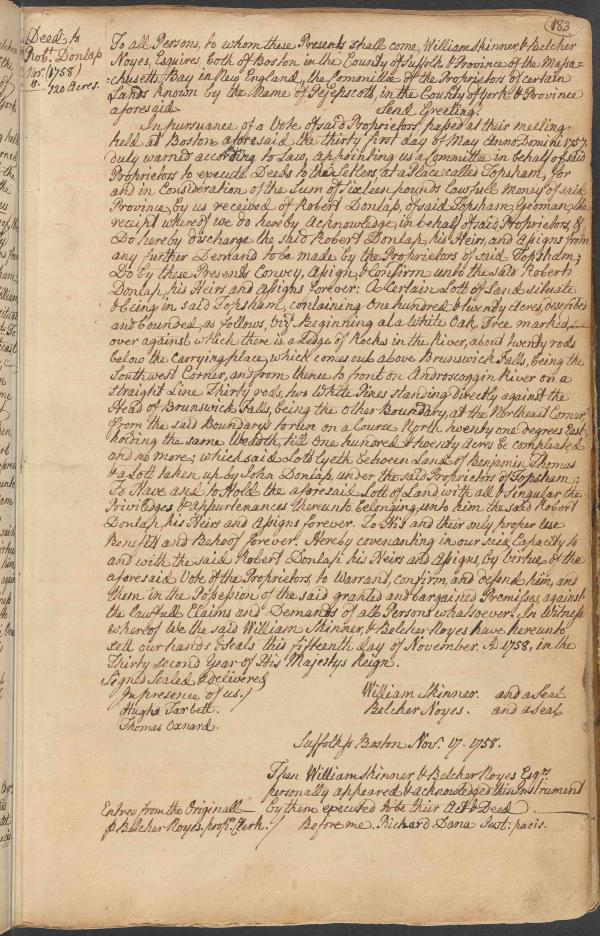 183
Deed to
Robt. Dunlap
Novr. (1758)
120 Acres.
To all Persons, to whom these Presents shall come, William Skinner, & Belcher
Noyes, Esquires, both of Boston in the County of Suffolk & Province of the Massa-
-chusetts Bay in New England, the Committee of the Proprietors of certain
Lands known by the Name of Pejepscott, in the County of York & Province
aforesaid Send Greeting.
In pursuance of a Vote of said Proprietors, passed at their meeting
held at Boston aforesaid the thirty first day of May Anno Domini 1757.
duly warned according to Law, appointing us a Committee in behalf of said
Proprietors to execute Deeds to the Setlers at a Place called Topsham, for
and in Consideration of the Sum of Sixteen pounds Lawfull Money of said
Province, by us received of Robert Dunlap, of said Topsham, Yeoman, the
receipt whereof we do hereby Acknowledge, in behalf of said Proprietors, &
Do hereby discharge the said Robert Dunlap, his Heirs, and Assigns from
any further Demand to be made by the Proprietors of said Topsham;
Do by these Presents Convey, Assign, & Confirm unto the said Robert
Dunlap, his Heirs and Assigns forever: A Certain Lott of Land situate
& being in said Topsham, containing One hundred & twenty Acres, described
and bounded, as follows, Vizt. Beginning at a White Oak Tree marked,
over against which there is a Ledge of Rocks in the River, about twenty rods
below the Carrying place, which comes out above Brunswick Falls, being the
South west Corner, and from thence to front on Androscoggin River on a
straight Line Thirty rods, two White Pines standing directly against the
Head of Brunswick Falls, being the other Boundary, at the Northeast Corner,
From the said Boundarys to run on a Course North twenty one degrees East,
holding the same Weadth, till One hundred & twenty Acres be compleated
and no more; which said Lott Lyeth between Land of Benjamin Thomas
& a Lott taken up by John Dunlap, under the said Proprietors of Topsham;
To Have and to Hold the aforesaid Lott of Land with all & Singular the
Priviledges & Appurtenances thereunto Belonging, unto him the said Robert
Dunlap, his Heirs and Assigns forever. To His and their only proper Use
Benefit and Behoof forever. Hereby covenanting in our said Capacity to
and with the said Robert Dunlap his Heirs and Assigns, by Virtue of the
aforesaid Vote of the Proprietors to Warrant, confirm, and defend him, and
them in the Possession of the said granted and bargained Premises, against
the Lawfull Claims and Demands of all Persons whatsoever. In Witness
whereof We the said William Skinner, & Belcher Noyes have hereunto
sett our hands & Seals this fifteenth day of November, AD 1758, in the
Thirty second Year of His Majestys Reign.
Signed Sealed & Delivered
In presence of us.
Hugh Tarbett.
Thomas Oxnard.
William Skinner. and a Seal
Belcher Noyes. and a Seal
Suffolk ss Boston Novr. 17. 1758.
Then William Skinner & Belcher Noyes Esqrs.
personally appeared & acknowledged this Instrument
by them executed to be their Act & Deed
Before me. Richard Dana Just: pacis.
Entred from the Originall
p Belcher Noyes. propr. Clerk.